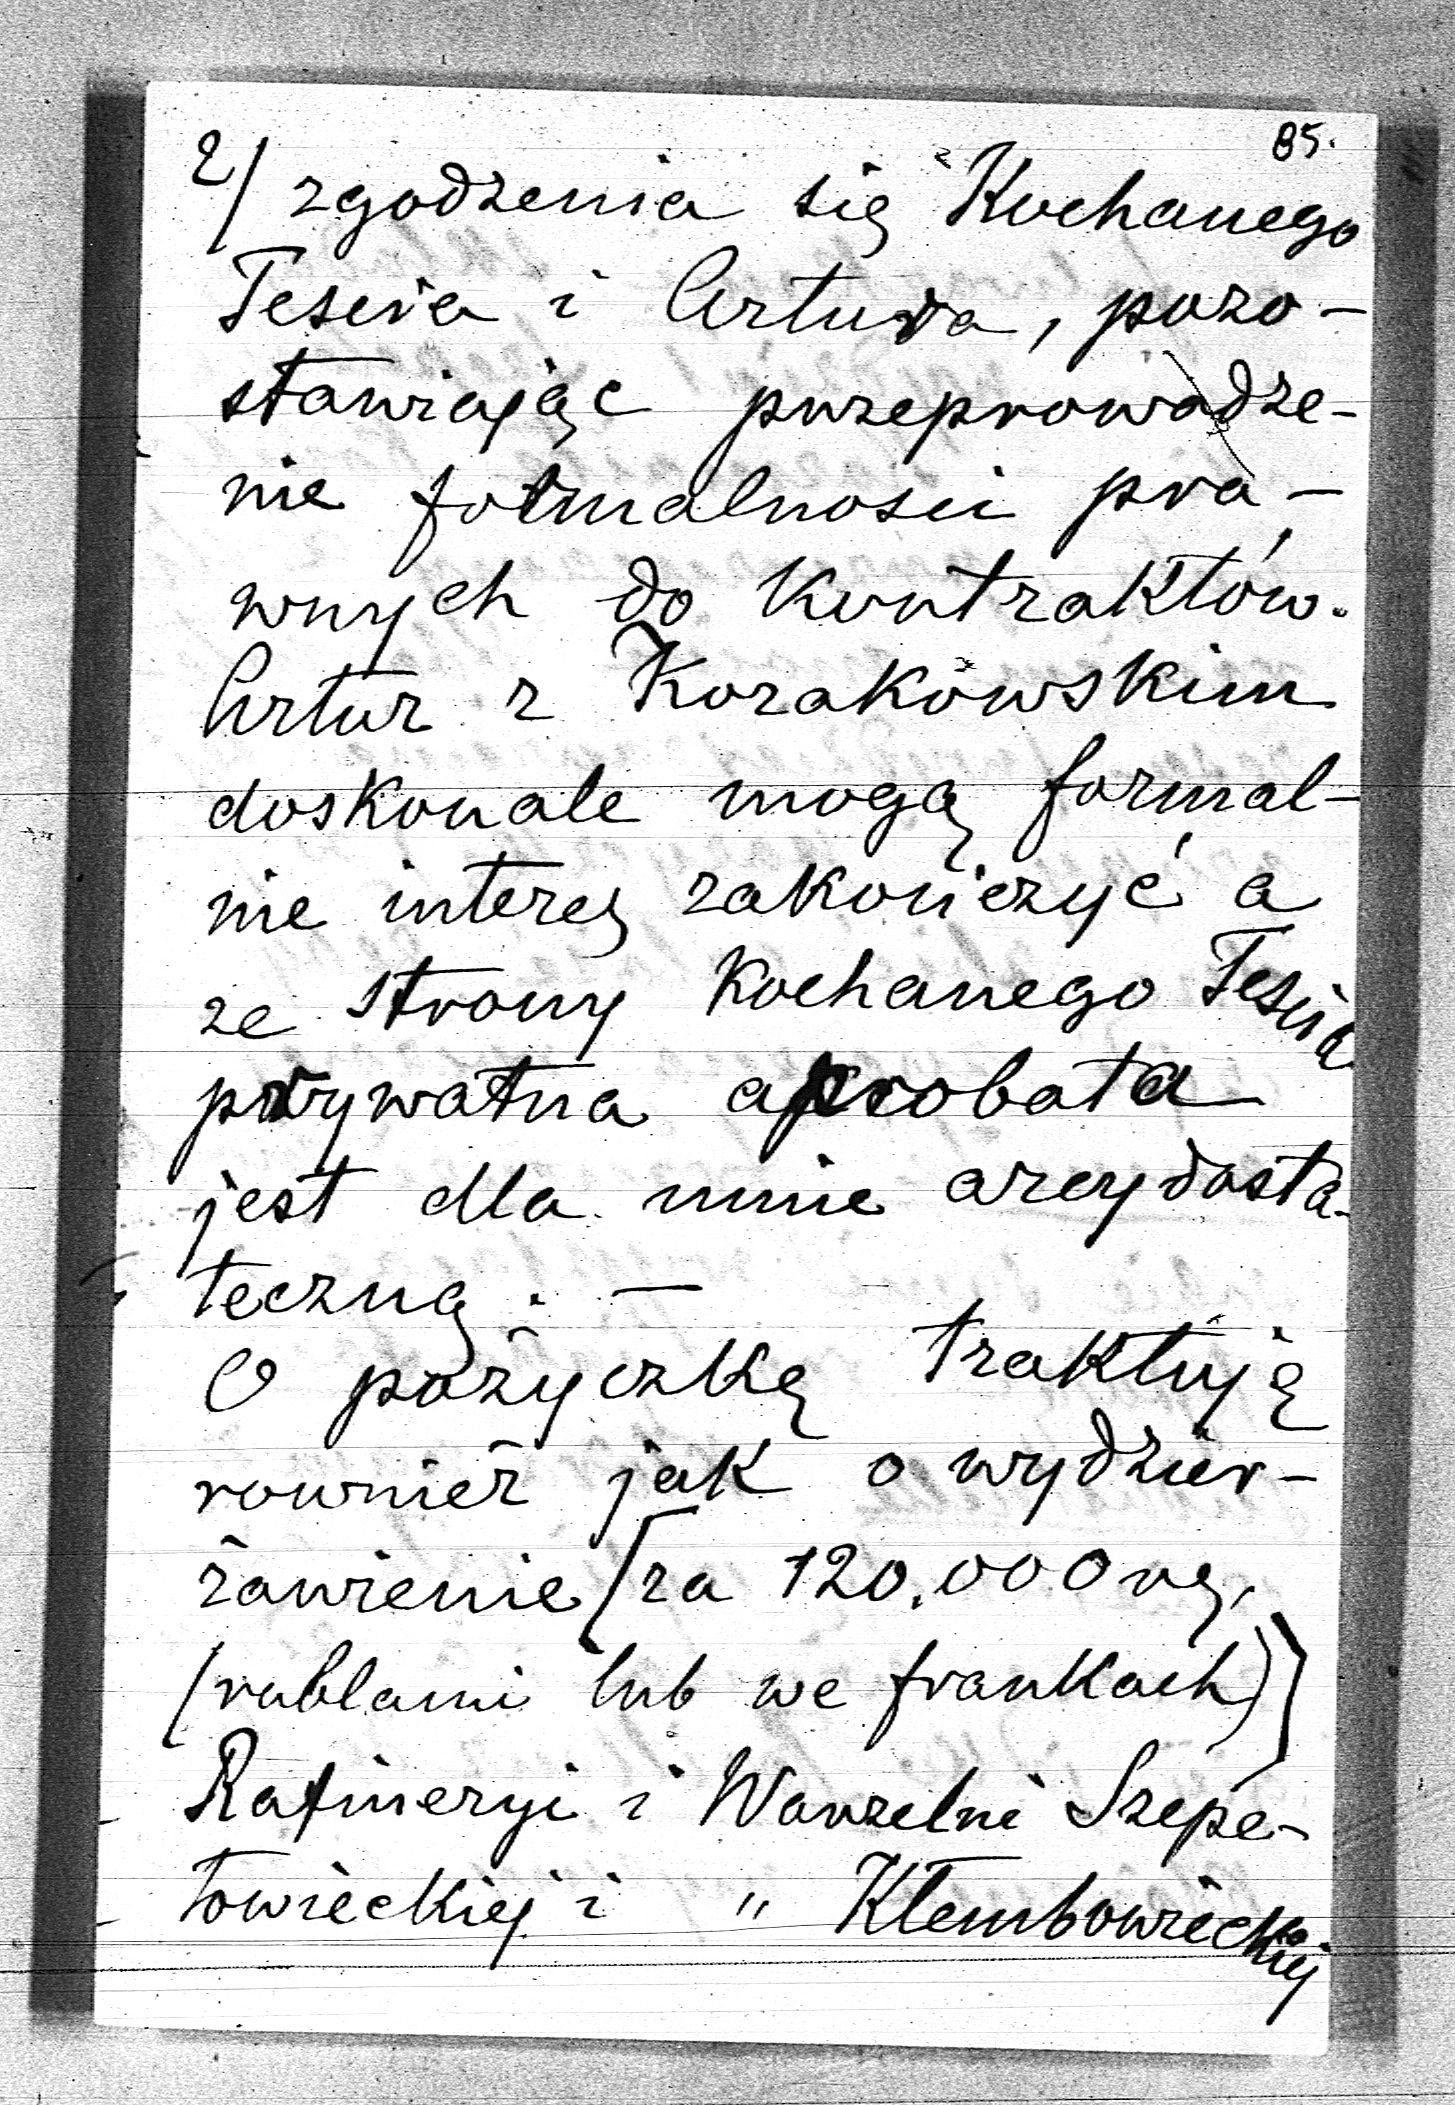 85.
2/ zgodzenia się Kochanego
Teścia i Artura, pozo-
stawiając przeprowadze-
nie formalności pra-
wnych do kontraktów.
Artur z Kozakowskim
doskonale mogą formal-
nie interes zakończyć a
ze strony Kochanego Teścia
prywatna aprobata
jest dla mnie arcydosta-
teczną. —
O pożyczkę traktuję
rownież jak o wydzier-
żawienie [za 120.000 rs.
(rublami lub we frankach)]
Rafineryi i Warzelni Szepe-
towieckiej i " Klembowieckiej